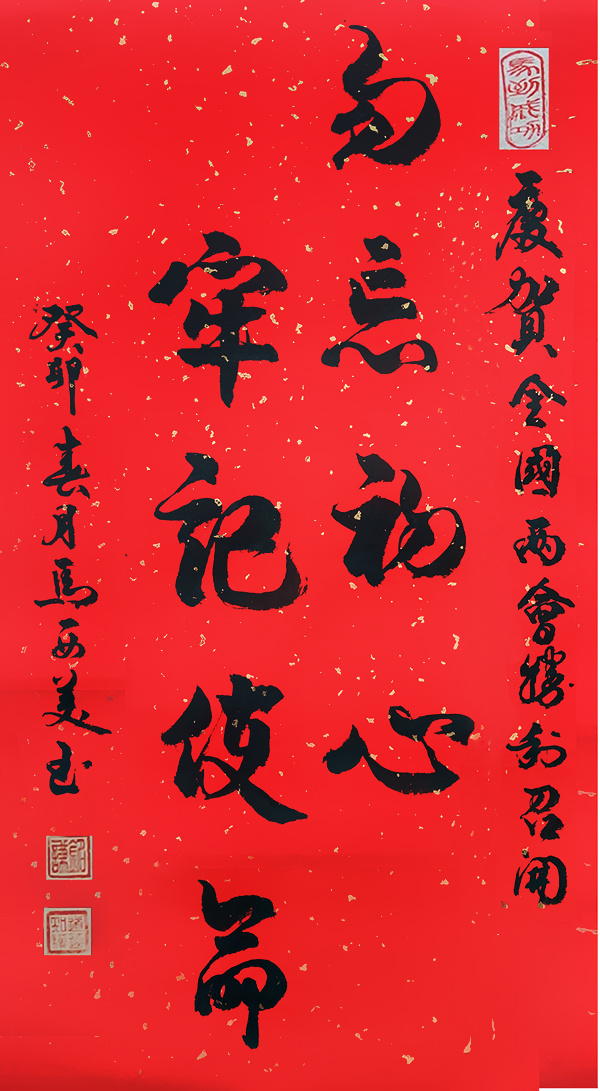 馬到成功
慶賀全國兩會勝利召開
勿忘初心
牢記使命
癸卯春月馬西美